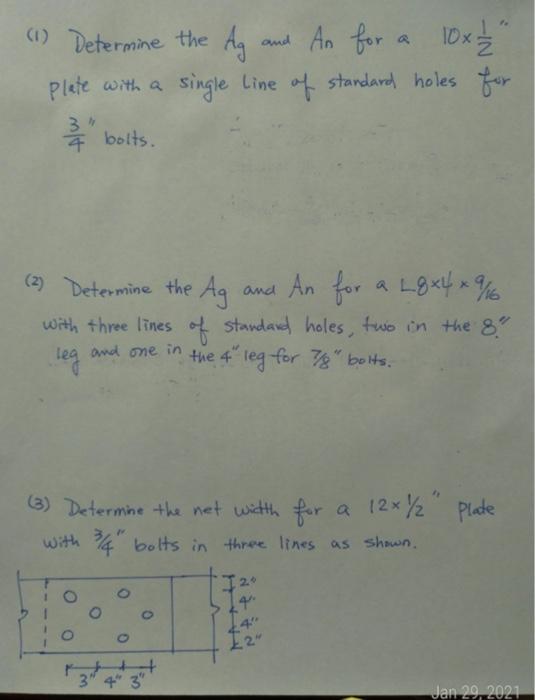 (1) Determine the Ag and An for a 10x1/2"
plate with a single line of standard holes for
3/4" bolts.
(2) Determine the Ag and An for a L8x4x9/16
with three lines of standard holes, two in the 8"
leg and one in the 4" leg for 7/8" bolts.
(3) Determine the net width for a 12x1/2" plate
with 3/4" bolts in three lines as shown.
2"
4"
4"
2"
3" 4" 3"
Jan 29, 2021